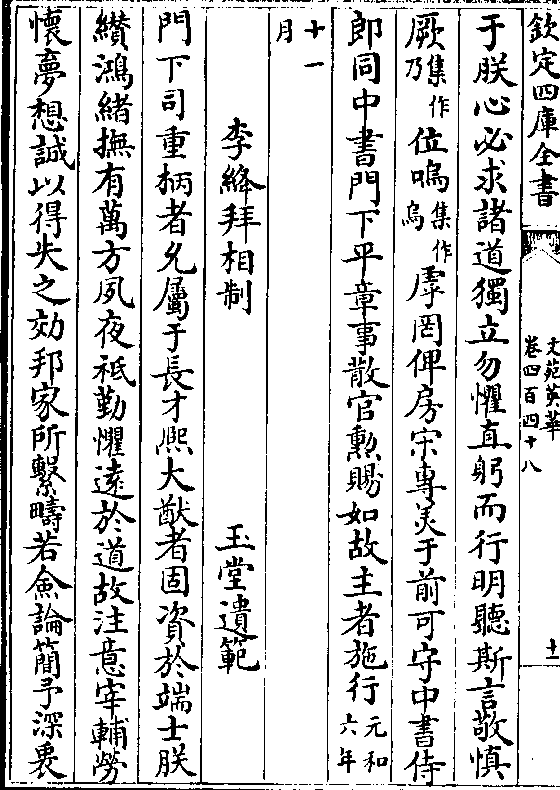 欽定四庫全書
文苑英華
卷四百四十八
十一
于朕心必求諸道獨立勿懼直躬而行明聽斯言敬慎
厥集作乃位嗚集作烏虖罔俾房宋專美于前可守中書侍
郎同中書門下平章事散官勲賜如故主者施行元和六年
十一月
李絳拜相制 玉堂遺範
門下司重柄者允屬于長才熈大猷者固資於端士朕
纉鴻緒撫有萬方夙夜祗勤懼逺於道故注意宰輔勞
懷夢想誠以得失之效邦家所繫疇若僉論簡予深衷